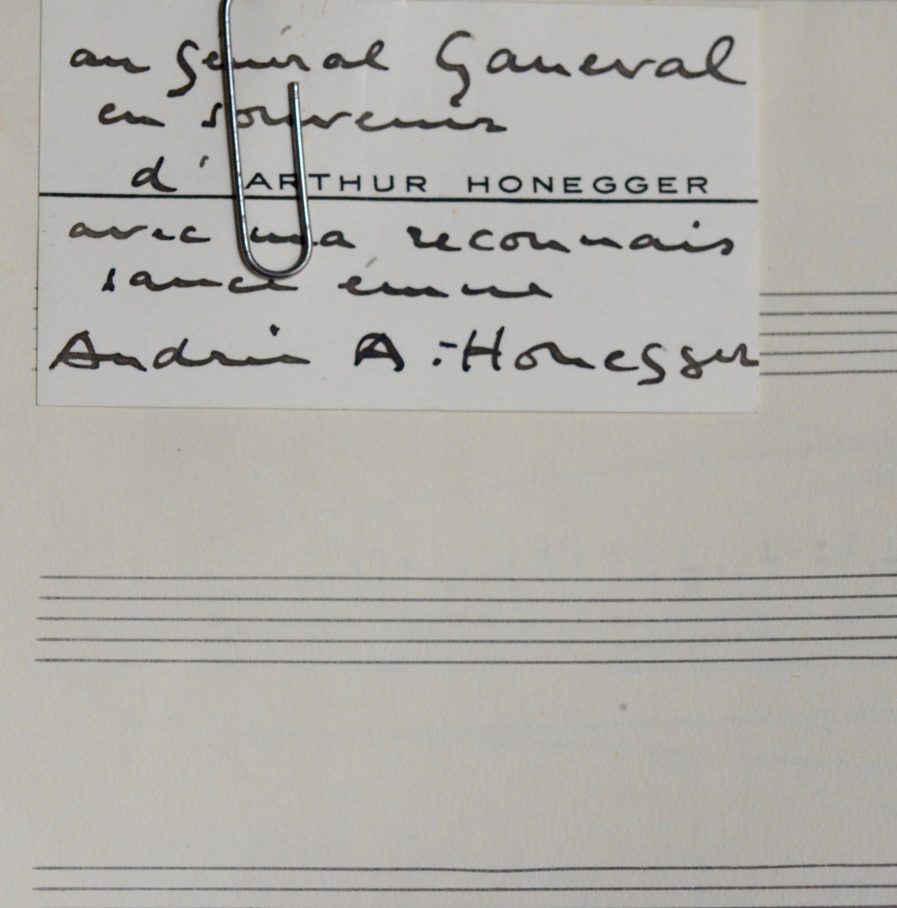 au général Ganeval
en souvenir
d' ARTHUR HONEGGER
avec ma reconnais
sance émue
Andrée A.-Honegger